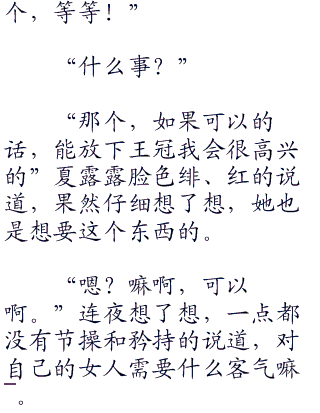 个，等等！”
“什么事？”
“那个，如果可以的
话，能放下王冠我会很高兴
的”夏露露脸色绯、红的说
道，果然仔细想了想，她也
是想要这个东西的。
“嗯？嘛啊，可以
啊。”连夜想了想，一点都
没有节操和矜持的说道，对
自己的女人需要什么客气嘛
。